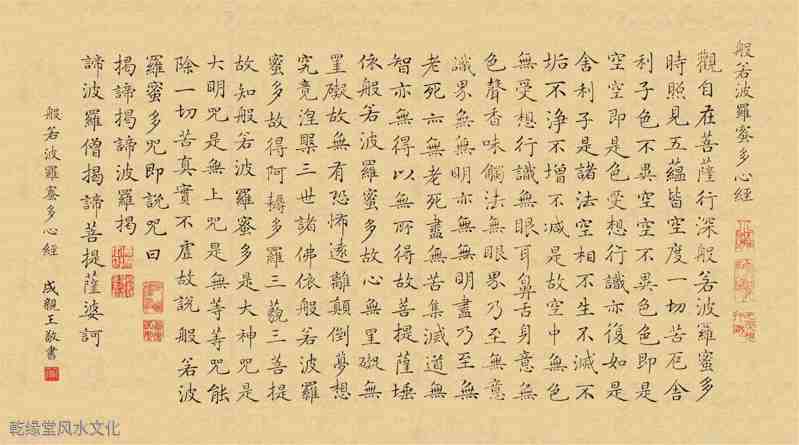 般若波羅蜜多心經
觀自在菩薩行深般若波羅蜜多
時照見五蘊皆空度一切苦厄舍
利子色不異空空不異色色即是
空空即是色受想行識亦復如是
舍利子是諸法空相不生不滅不
垢不淨不增不減是故空中無色
無受想行識無眼耳鼻舌身意無
色聲香味觸法無眼界乃至無意
識界無無明亦無無明盡乃至無
老死亦無老死盡無苦集滅道無
智亦無得以無所得故菩提薩埵
依般若波羅蜜多故心無罣礙無
罣礙故無有恐怖遠離顛倒夢想
究竟涅槃三世諸佛依般若波羅
蜜多故得阿耨多羅三藐三菩提
故知般若波羅蜜多是大神咒是
大明咒是無上咒是無等等咒能
除一切苦真實不虛故說般若波
羅蜜多咒即說咒曰
揭諦揭諦波羅揭
諦波羅僧揭諦菩提薩婆訶
般若波羅蜜多心經 成親王敬書
乾缘堂风水文化